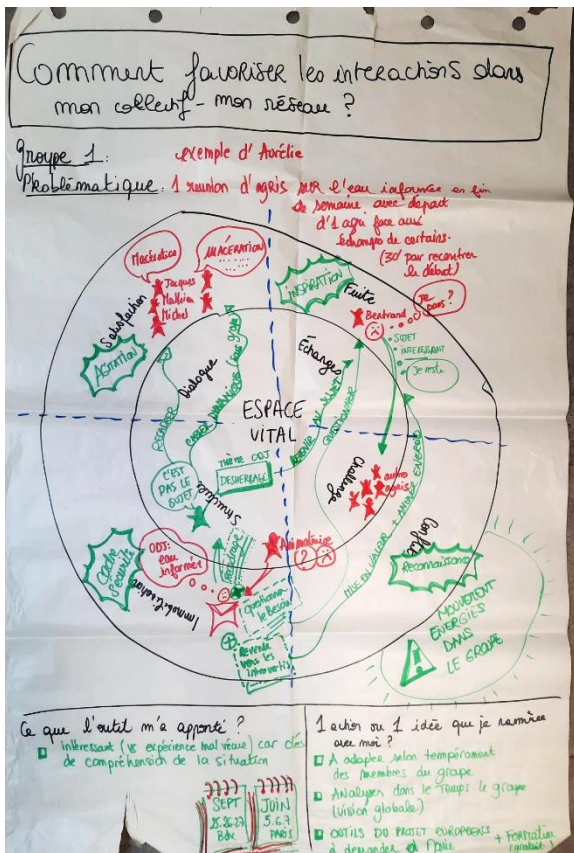 Comment favoriser les interactions dans
mon collectif - mon réseau ?
Groupe 1:
exemple d'Aurélie
Problématique: 1 réunion d'agris sur l'eau informée en fin
de semaine avec départ
d'1 agri face aux
échanges de certains.
(30' par recontrer
le début)
Macération
MACÉRATION
Jacques
Mathieu
Michel
Satisfaction
AGITATION
INSPIRATION
Fuite
Je pars ?
Bertrand
SUJET
INTERESSANT
Je reste
Dialogue
Échanges
RECADRER
ESPACE
VITAL
THÈME ODJ
DESHERBAGE
C'EST
PAS LE
SUJET
Structure
Challenge
autres
agris
QUESTIONNER
MISE EN VALEUR + ANCRER ENERGIE
Conflit
Reconnaissance
Cache
Sécurité
ODJ:
eau
informée
Immobilisation
Animatrice
Questionne
le Besoin
Revenir
vers les
introvertis
MOUVEMENT
ENERGIES
DANS
LE GROUPE
Ce que l'outil m'a apporté ?
intéressant (vs expérience mal vécue) car clés
de compréhension de la situation
SEPT
25.26.27
Bdx
JUIN
5.6.7
PARIS
1 action ou 1 idée que je ramène
avec moi ?
A adapter selon tempérament
des membres du groupe
Analyser dans le temps le groupe
(vision globale)
OUTILS DU PROJET EUROPEENS
à demander à
+ Formation
(gratuit)